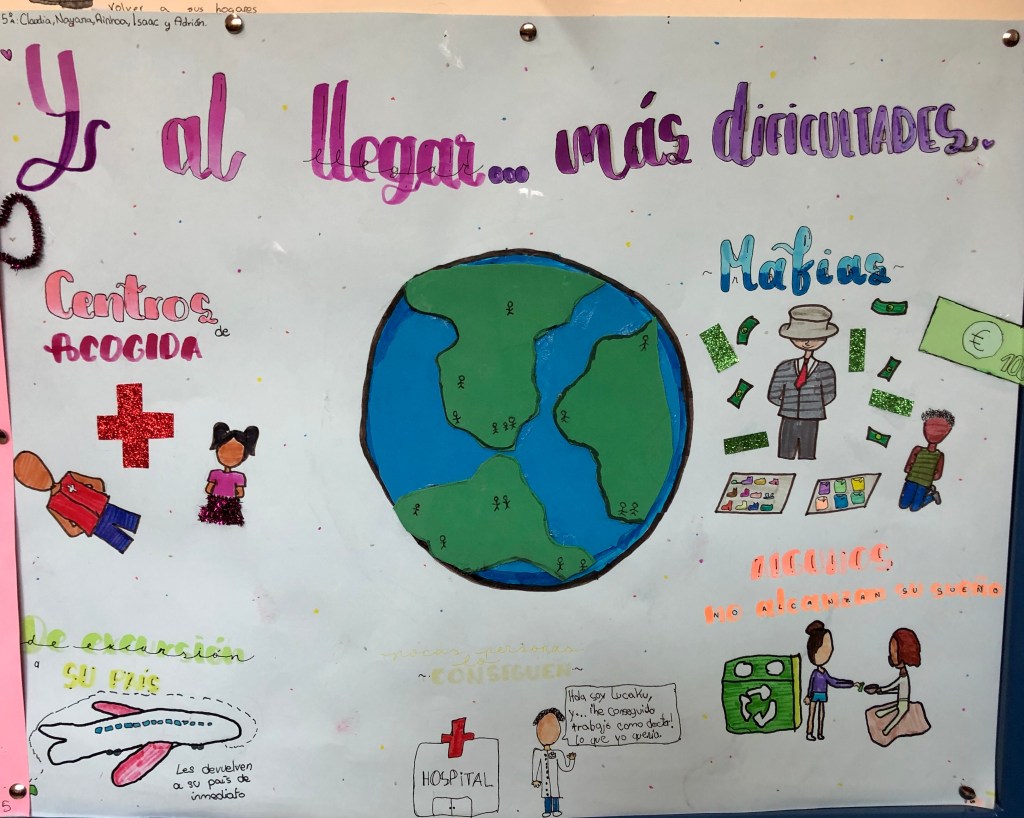 volver a sus hogares
5ºA: Claudia, Nayara, Ainhoa, Isaac y Adrián.
Ys al llegar... más dificultades..
Centros
de
ACOGIDA
Mafias
€
100
MUCHOS
NO alcanzan SU SUEÑO
De excursión
a
SU PAÍS
Les devuelven
a su país de
inmediato
pocas personas
CONSIGUEN
HOSPITAL
Hola soy Lucaku,
y... ¡He conseguido
trabajo como doctor!
Lo que yo quería.
5